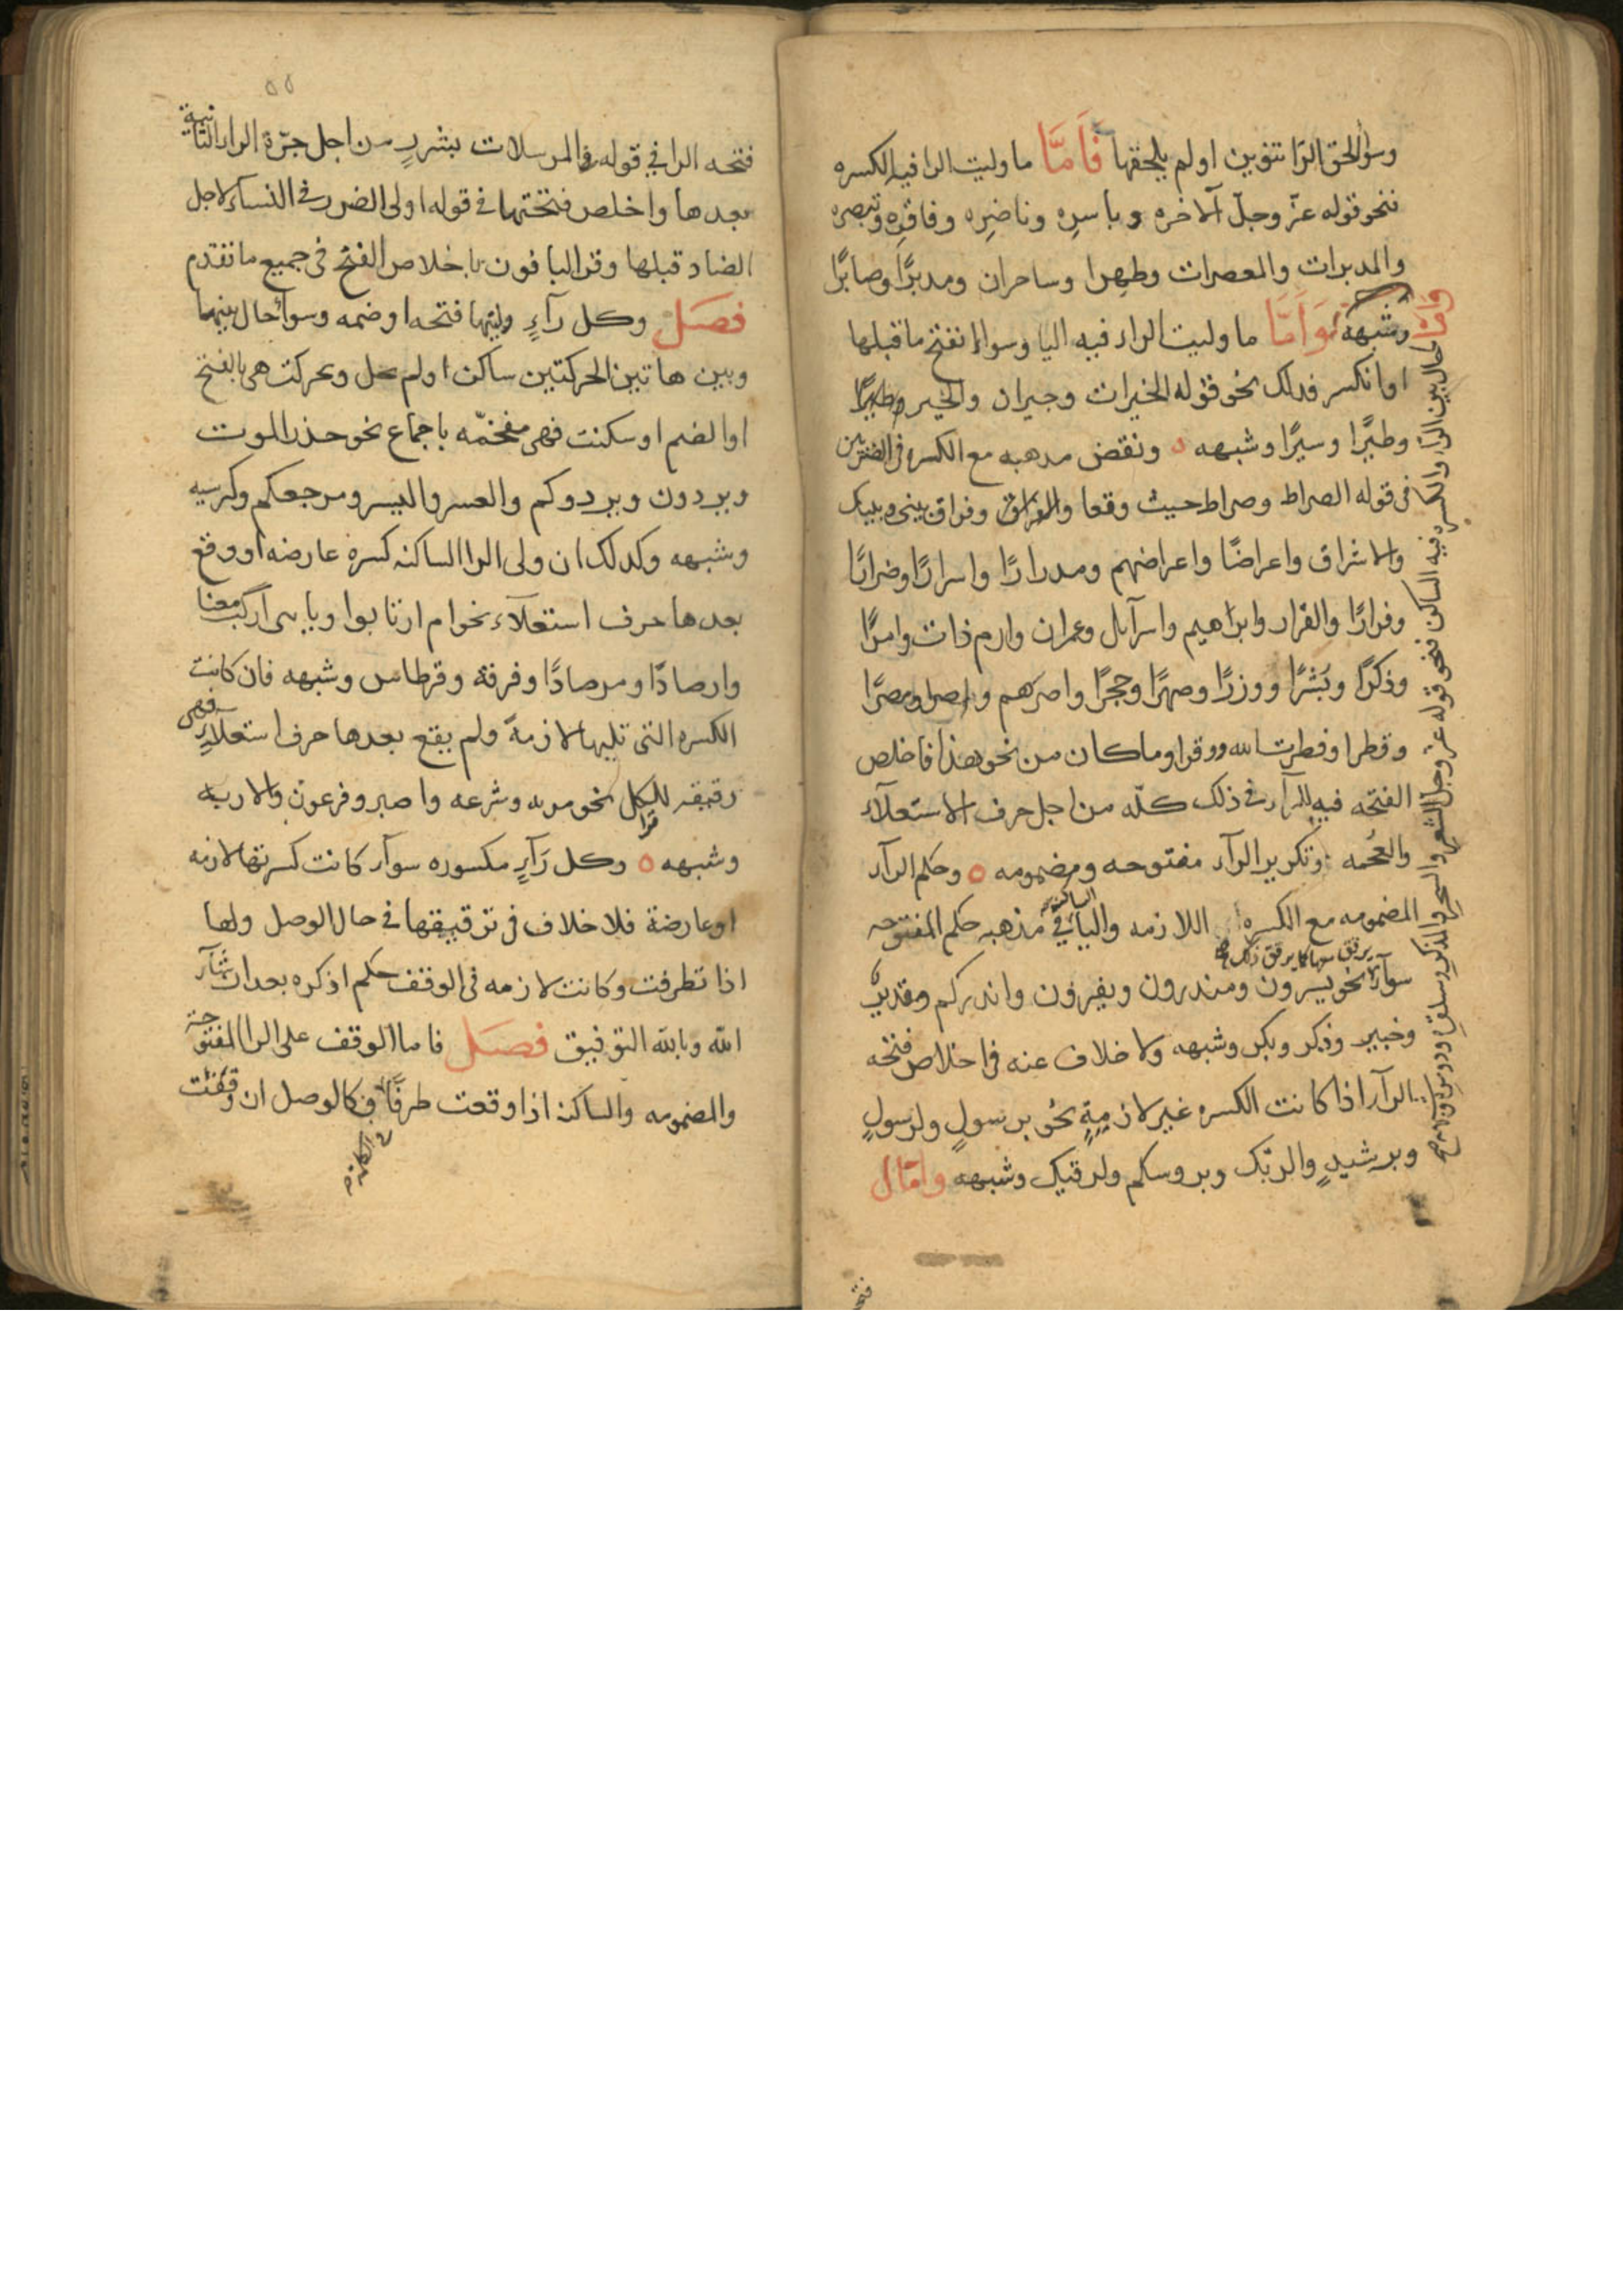 وسوا لحق الرا تنوين او لم يلحقها فَاَمّا ما وليت الرا فيه الكسره
فنحو قوله عزّ وجلّ الآخره و باسره وناضِره وفاقره وتبصره
والمدبرات والمعصرات وطهرا وساحران ومدبرًا وصابرًا
وشبهه وَاَمّا ما وليت الراء فيه اليا وسوا انفتح ما قبلها
او انكسر فذلك نحو قوله الخيرات وحيران والخير
وطيرًا وسيرًا وشبهه ه ونقض مذهبه مع الكسره في الضربين
في قوله الصراط وصراط حيث وقعا والفراق وفراق بيني وبينك
والاشراق واعراضًا واعراضهم ومدرارًا واسرارًا وضرارًا
وفرارًا والفرار وابرٰاهيم واسرآيل وعمران وارم ذات وامرًا
وذكرًا وسترًا ووزرًا وصهرًا وحجرًا واصرهم واصرا ومصرًا
وقطرا وفطرت الله ووقرا وما كان من نحو هذا فاخلص
الفتحه فيه للرآء في ذلك كلّه من اجل حرف الاستعلآء
والعُجمه وتكرير الرآء مفتوحه ومضمومه ه وحكم الرآء
المضمومه مع الكسره اللازمه واليا في مذهبه حكم المفتوحه
الساكنه
سوآء نحو يسرون ومنذرون ويغفرون وانذركم وقدير
وخبير وذكر وبكر وشبهه ولا خلاف عنه في اخلاص فتحه
الرآء اذا كانت الكسره غير لازمةٍ نحو برسولٍ ولرسولٍ
وبرشيدٍ والربّك وبروسكم ولرقيك وشبهه وامال
وامّا ما حال بين الرا والكسر فيه الساكن فنحو قوله عزّ وجلّ الشعر والسحر والذكر
فتحه
٥٥
فتحه الرا في قوله في المرسلات بشررٍ من اجل جرّة الراء الثانية
بعدها واخلص فتحتها في قوله اولى الضرر في النسآء لاجل
الضاد قبلها وقرا الباقون باخلاص الفتح في جميع ما تقدم
فصَل وكل رآءٍ وليتها فتحه او ضمه وسوآء حال بينهما
وبين هاتين الحركتين ساكن او لم يحل وتحركت هي بالفتح
او الضم او سكنت فهي مفخمّه باجماع نحو حذر الموت
ويردون ويردوكم والعسر واليسر ومرجعكم وكرسيه
وشبهه وكذلك ان ولى الرا الساكنه كسره عارضه او وقع
بعدها حرف استعلآء نحو ام ارتابوا ويا بنى آركب معنا
وارصادًا ومرصادًا وفرقة وقرطاس وشبهه فان كانت
الكسره التي تليها لازمةً ولم يقع بعدها حرف استعلآءٍ فهى
رقيقه للكل نحو مريه وشرعه واصبر وفرعون والاربه
وشبهه ه وكل رَآءٍ مكسوره سوآء كانت كسرتها لازمه
او عارضة فلا خلاف في ترقيقها في حال الوصل ولها
اذا تطرفت وكانت لازمه في الوقف حكم اذكره بعد ان شآء
الله وبالله التوفيق فصَل فاما الوقف على الرا المفتوحة
والمضمومه والساكنه اذا وقعت طرفًا في كالوصل ان وقفت